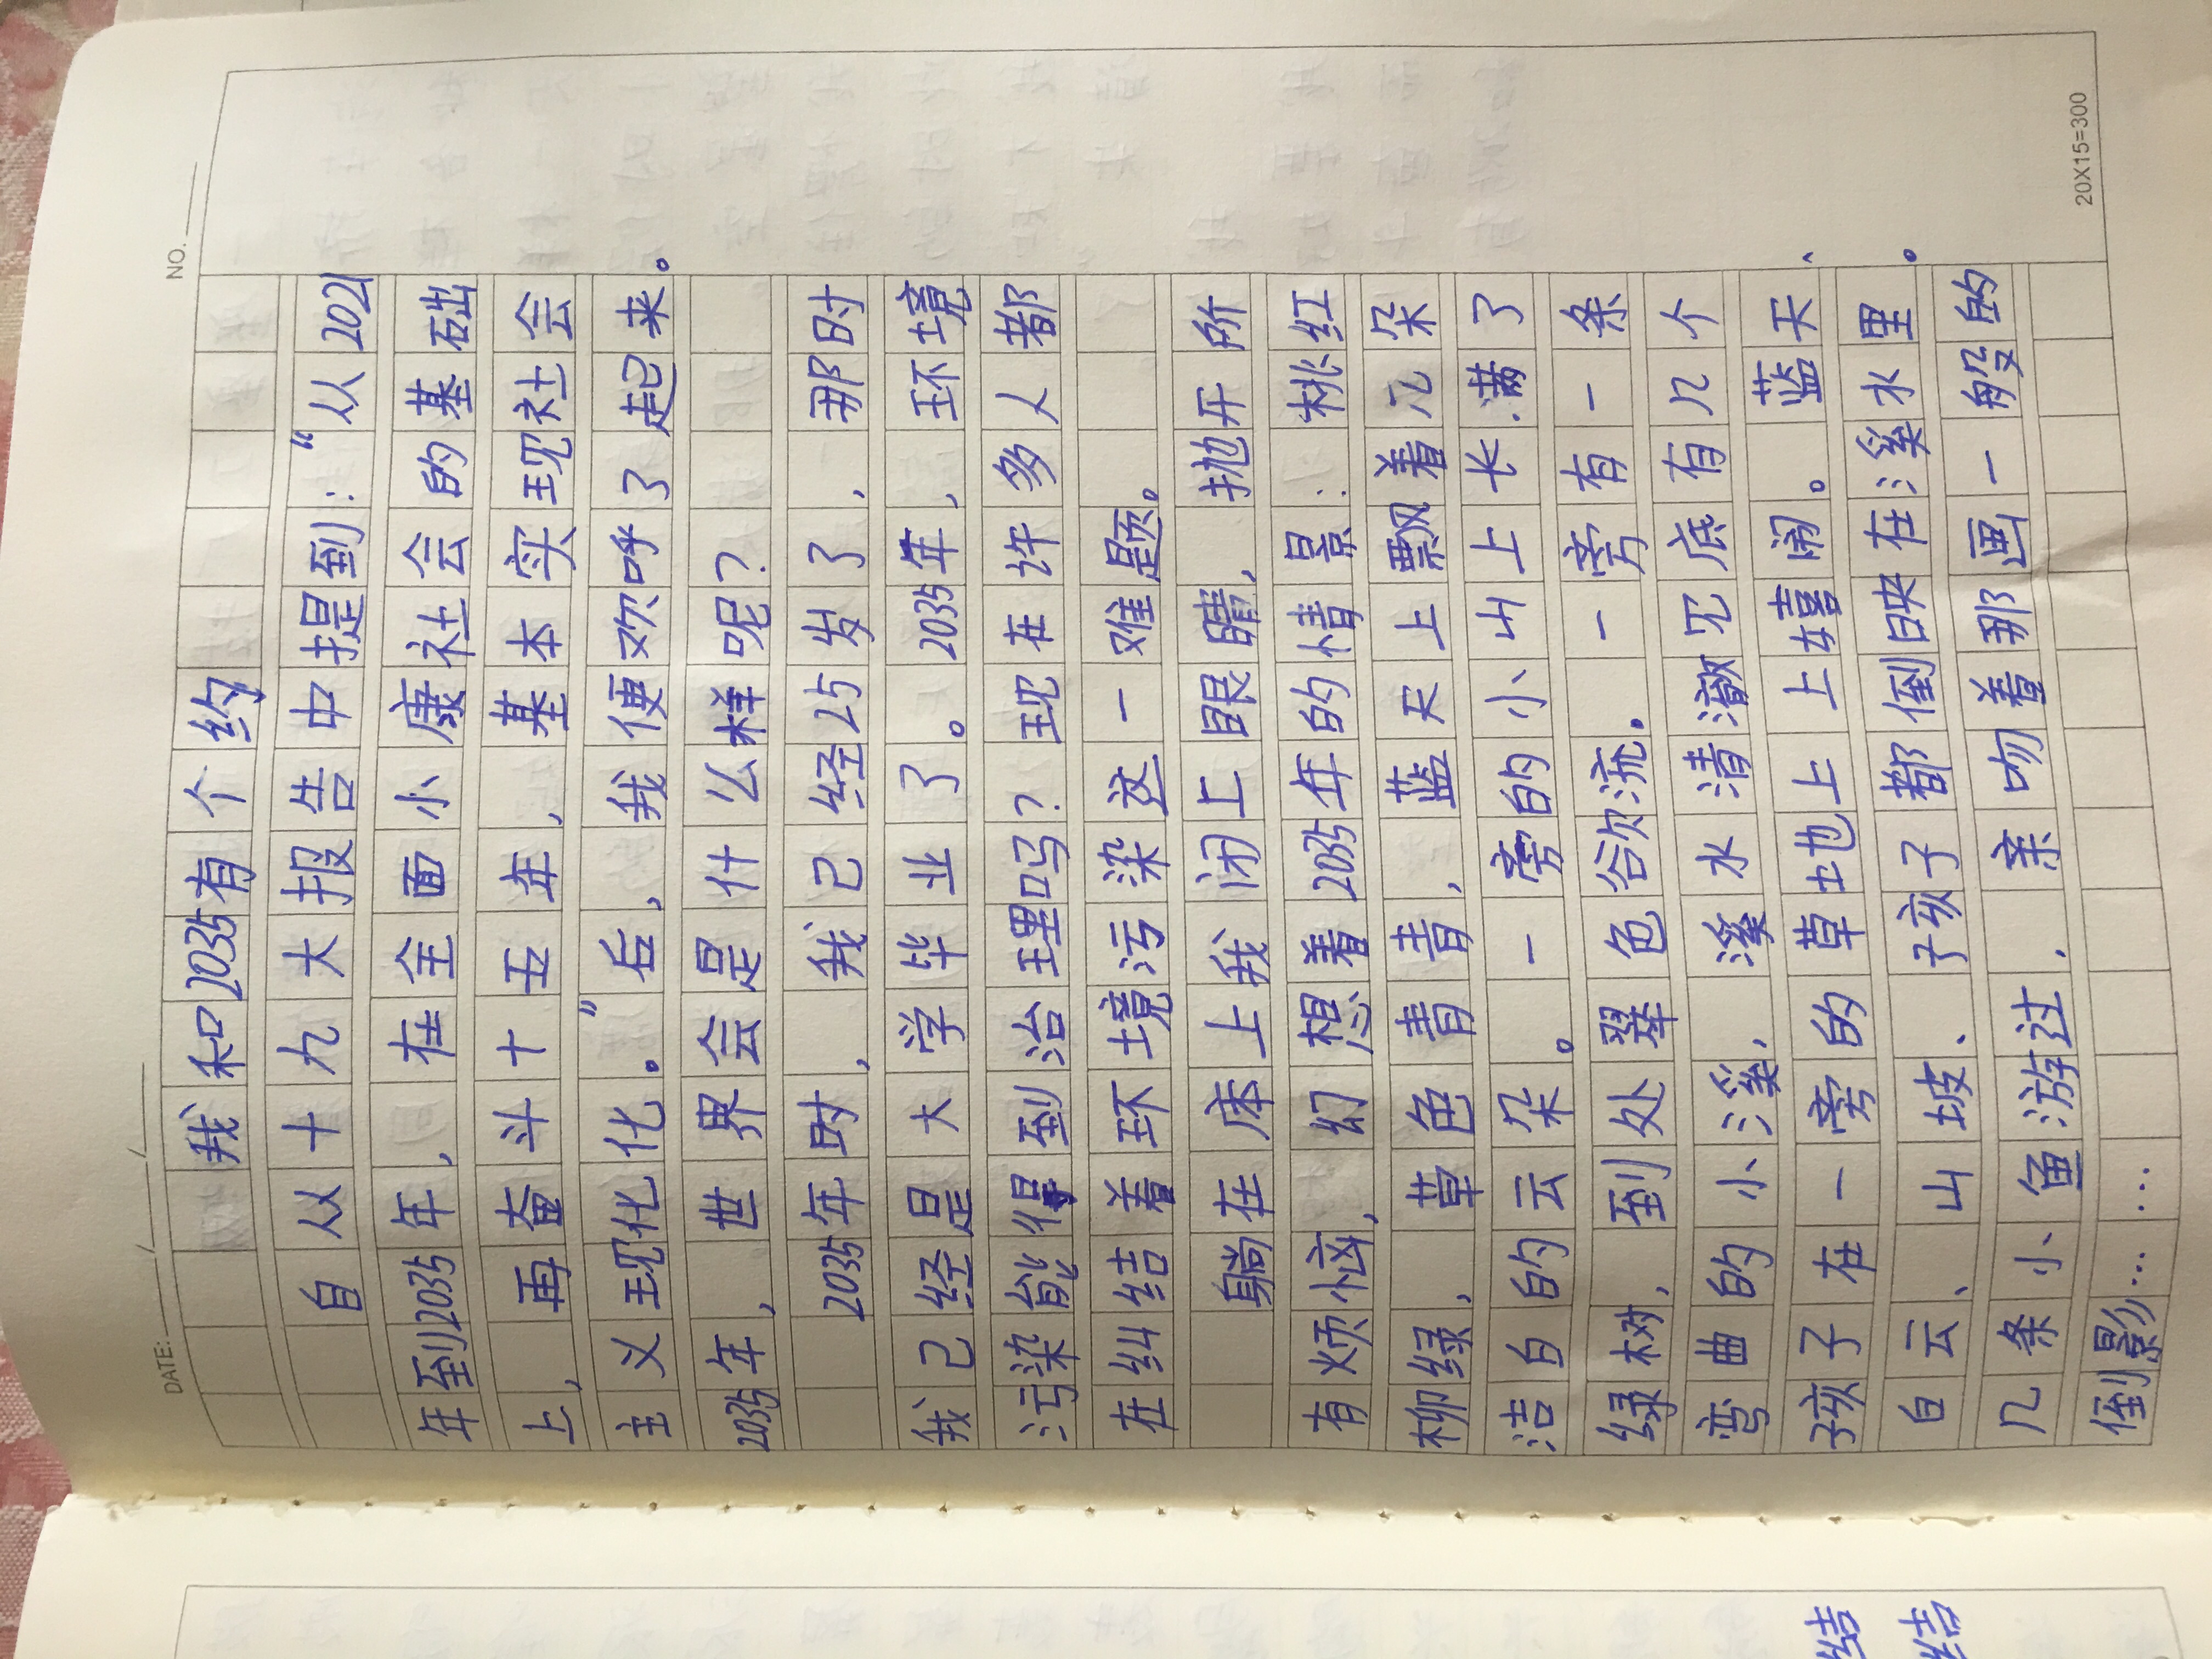 DATE: / /
NO.
我和2035有个约
自从十九大报告中提到：“从2021
年到2035年，在全面小康社会的基础
上，再奋斗十五年，基本实现社会
主义现化化。”后，我便欢呼了起来。
2035年，世界会是什么样呢？
2035年时，我已经25岁了，那时
我已经是大学毕业了。2035年，环境
污染能得到治理吗？现在许多人都
在纠结着环境污染这一难题。
躺在床上我闭上眼睛，抛开所
有烦恼，幻想着2035年的情景：桃红
柳绿，草色青青，蓝天上飘着几朵
洁白的云朵。一旁的小山上长满了
绿树，到处翠色欲流。一旁有一条
弯曲的小溪，溪水清澈见底有几个
孩子在一旁的草地上上嬉闹。蓝天、
白云、山坡、孩子都倒映在溪水里。
几条小鱼游过，亲吻着那画一般的
倒影……
20X15=300
结
结